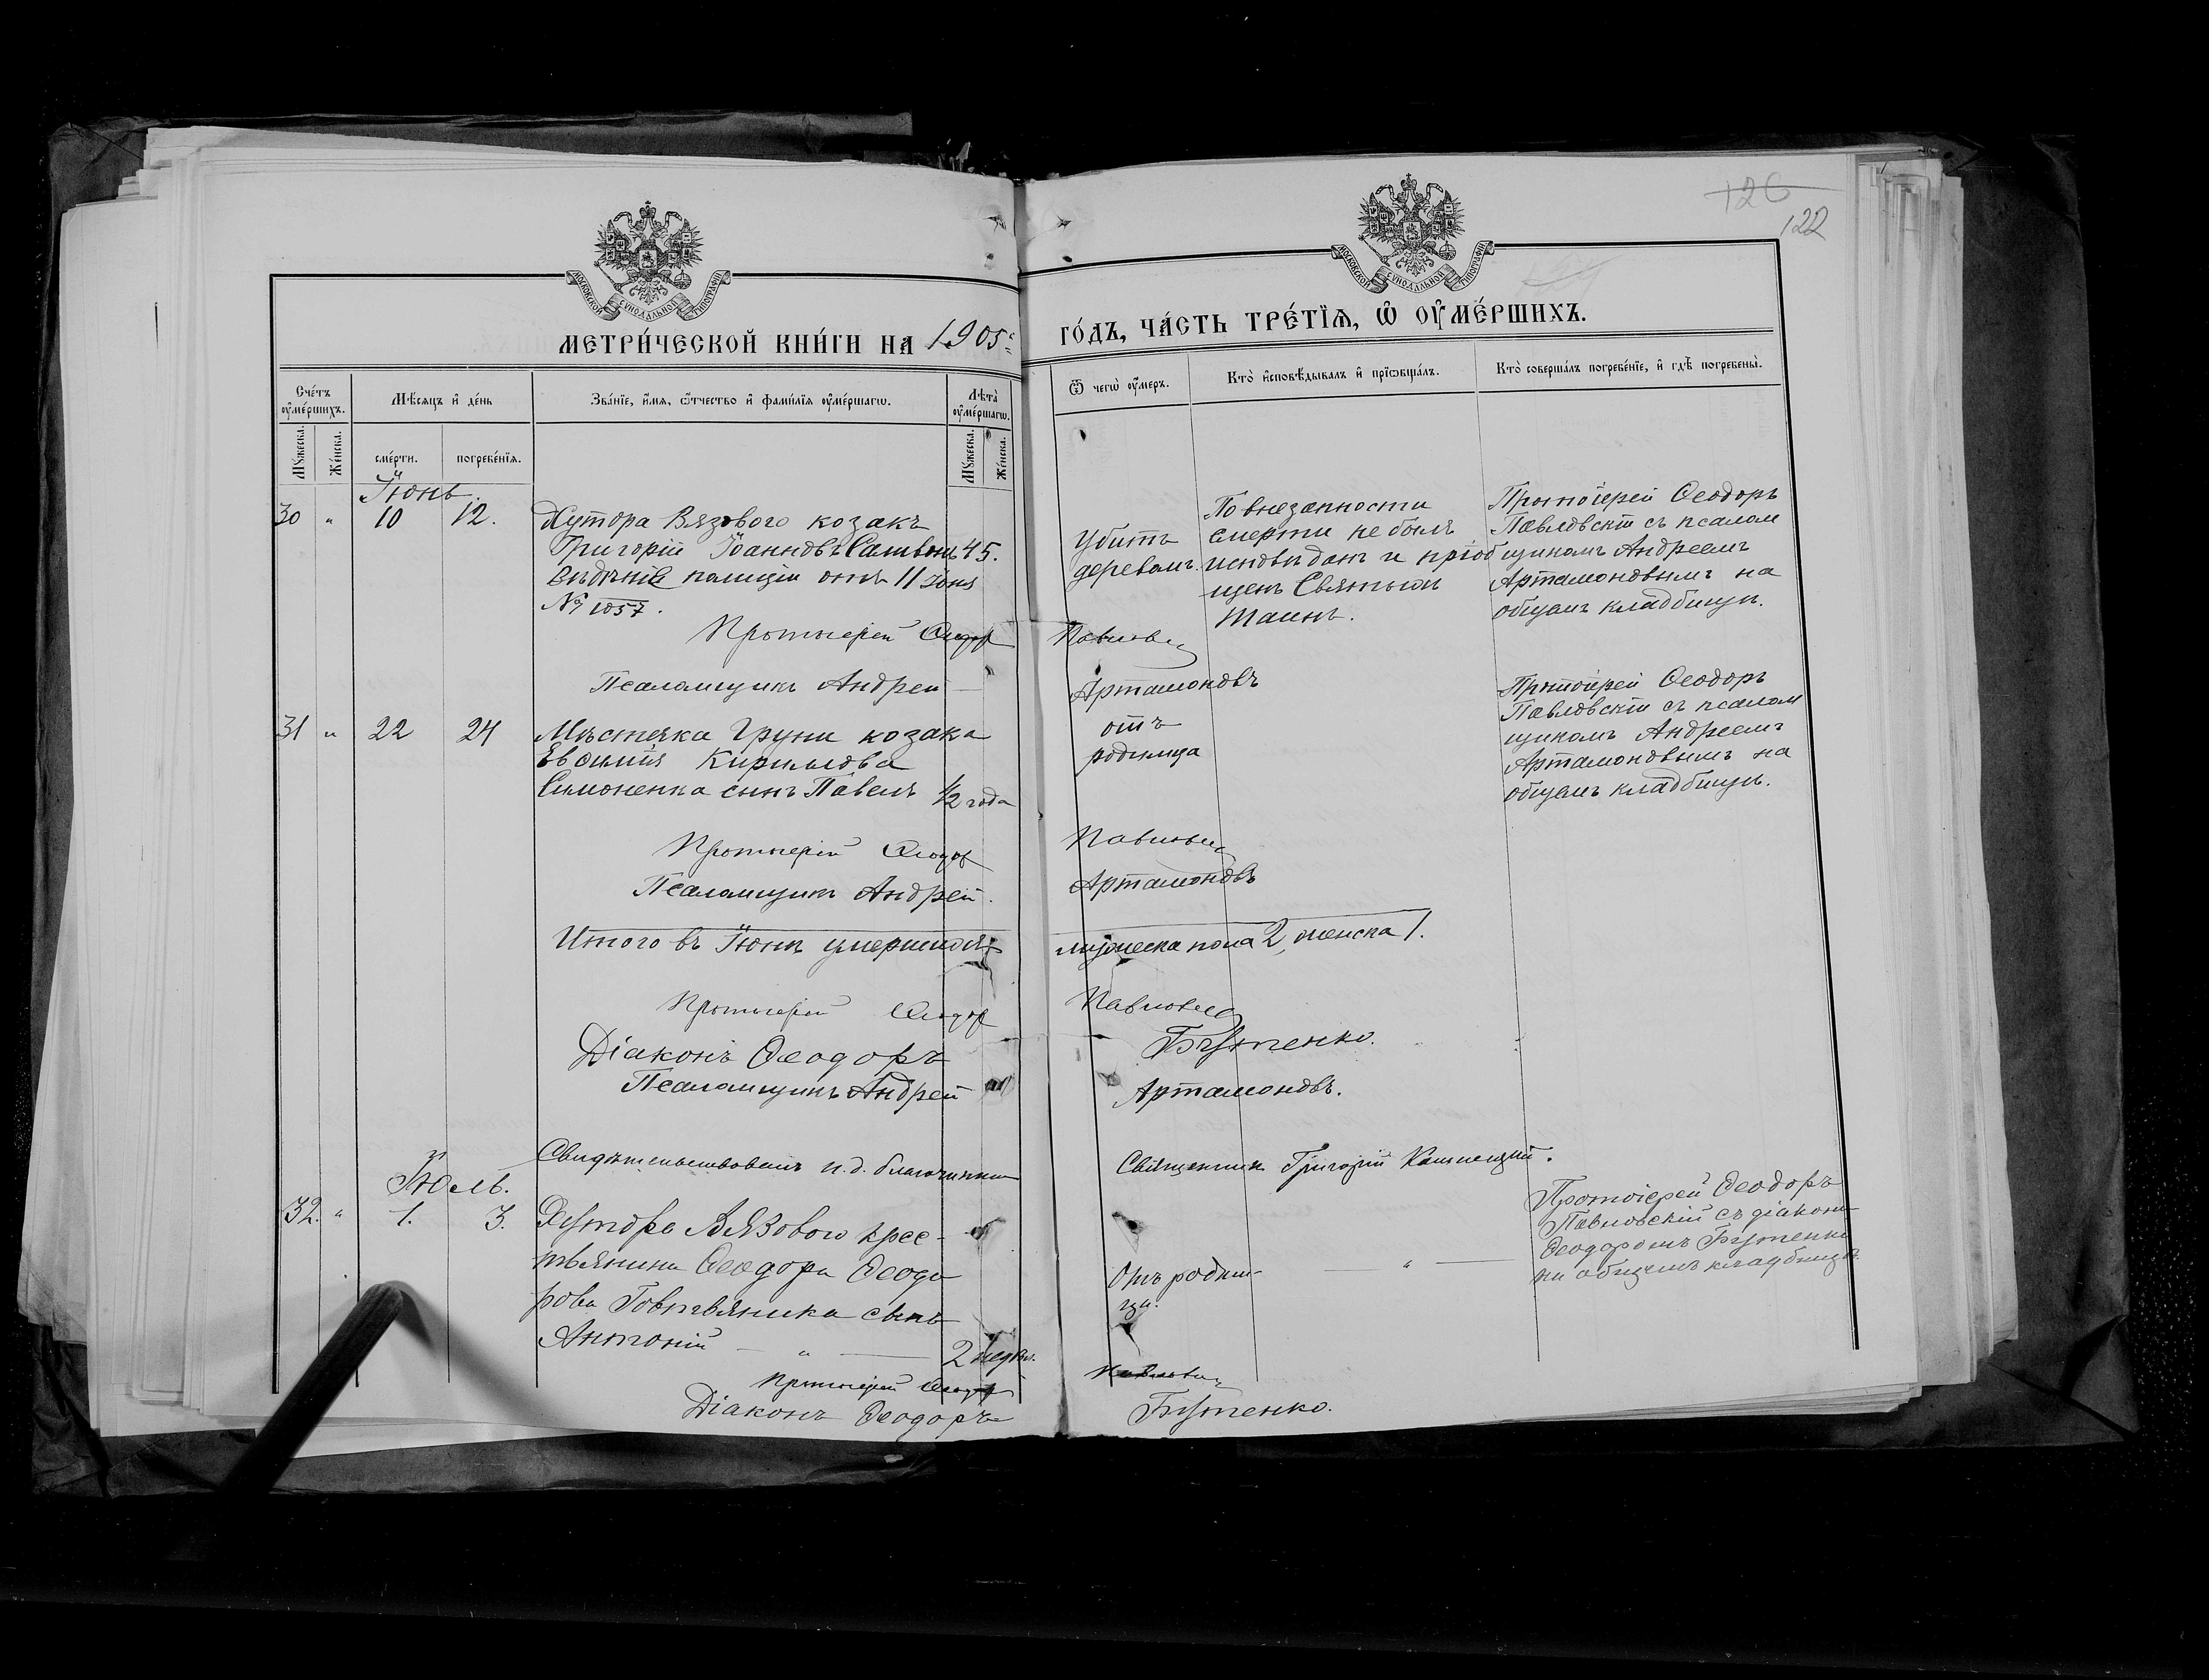 126
122
МОСКОВСКОЙ СУНОДАЛЬНОЙ ТИПОГРАФІИ
МОСКОВСКОЙ СУНОДАЛЬНОЙ ТИПОГРАФІИ
МЕТРИ́ЧЕСКОЙ КНИ́ГИ НА 1905 ГО́ДЪ, ЧА́СТЬ ТРЕ́ТЇѦ, Ѡ҆ ОУ҆МЕ́РШИХЪ.
Сче́тъ оу҆ме́ршихъ.
Мꙋ́жеска.
Же́нска.
Мѣ́сѧцъ и҆ де́нь
сме́рти.
погребе́нїѧ.
Зва́нїе, и҆́мѧ, ѻ҆́тчество и҆ фами́лїѧ оу҆ме́ршагѡ.
Лѣ́та оу҆ме́ршагѡ.
Мꙋ́жеска.
Же́нска.
Ѿ чегѡ̀ оу҆́меръ.
Кто̀ и҆сповѣ́дывалъ и҆ прїѡбща́лъ.
Кто̀ соверша́лъ погребе́нїе, и҆ гдѣ̀ погребены̀.
Іюнь.
30 " 10 12.
Хутора Вязового козакъ
Григорій Іоанновъ 45.
полиціи отъ 11 Іюня
№ 1057.
Убитъ
деревомъ.
По внезапности
смерти не былъ
исповѣданъ и пріоб
щенъ Святыхъ
Таинъ.
Протоіерей Ѳеодоръ
Павловскій съ псалом
щикомъ Андреемъ
Артамоновымъ на
общемъ кладбищѣ.
Протоіерей Ѳеодор Павловскій
Псаломщикъ Андрей Артамоновъ
31 " 22 24
Мѣстечка Груни козака
Евѳимія Кириллова
Симоненка сынъ Павелъ 1/2 года
отъ
родимца
Протоіерей Ѳеодоръ
Павловскій съ псалом
щикомъ Андреемъ
Артамоновымъ на
общемъ кладбищѣ.
Протоіерей Ѳеодор Павловскій
Псаломщикъ Андрей Артамоновъ
Итого въ Іюнѣ умершихъ мужеска пола 2, женска 1.
Протоіерей Ѳеодор Павловскій
Діаконъ Ѳеодоръ Бутенко.
Псаломщикъ Андрей Артамоновъ.
Свидѣтельствовалъ и.д. благочиннаго Священникъ Григорій
Іюль.
32. " 1. 3.
Хутора Вязового крес-
тьянина Ѳеодора Ѳеодо
рова Говтвяника сынъ
Антоній — " — 2 недѣл.
Отъ родим-
ца.
— " —
Протоіерей Ѳеодоръ
Павловскій съ діакон
Ѳеодоромъ Бутенко
на общемъ кладбищѣ.
Протоіерей Ѳеодор Павловскій
Діаконъ Ѳеодоръ Бутенко.